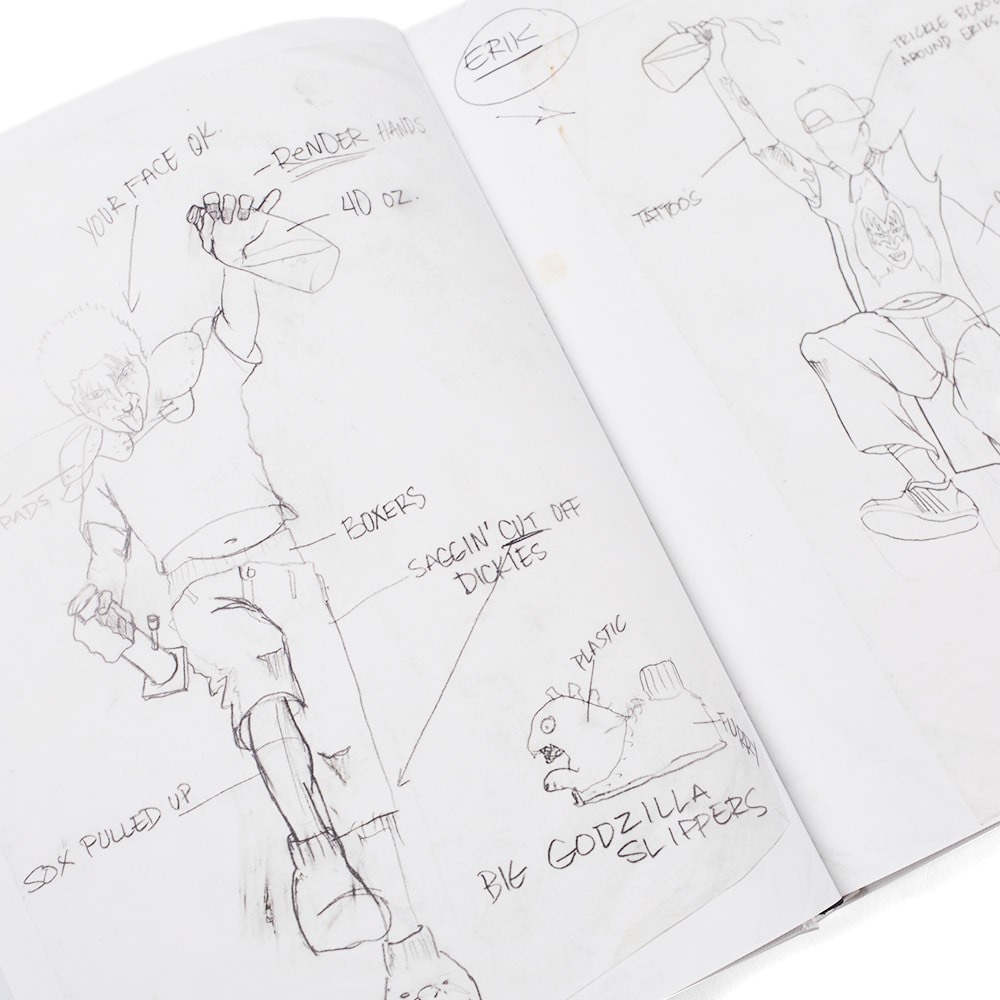 YOUR FACE OK.
RENDER HANDS
40 OZ.
PADS
BOXERS
SAGGIN' CUT OFF
DICKIES
PLASTIC
FURRY
SOX PULLED UP
BIG GODZILLA
SLIPPERS
ERIK
TRICKLE BLOOD
AROUND ERIKS
TATTOO'S